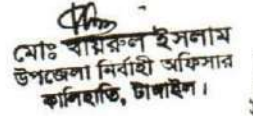 মোঃ খায়রুল ইসলাম
উপজেলা নির্বাহী অফিসার
কালিহাতি, টাঙ্গাইল।